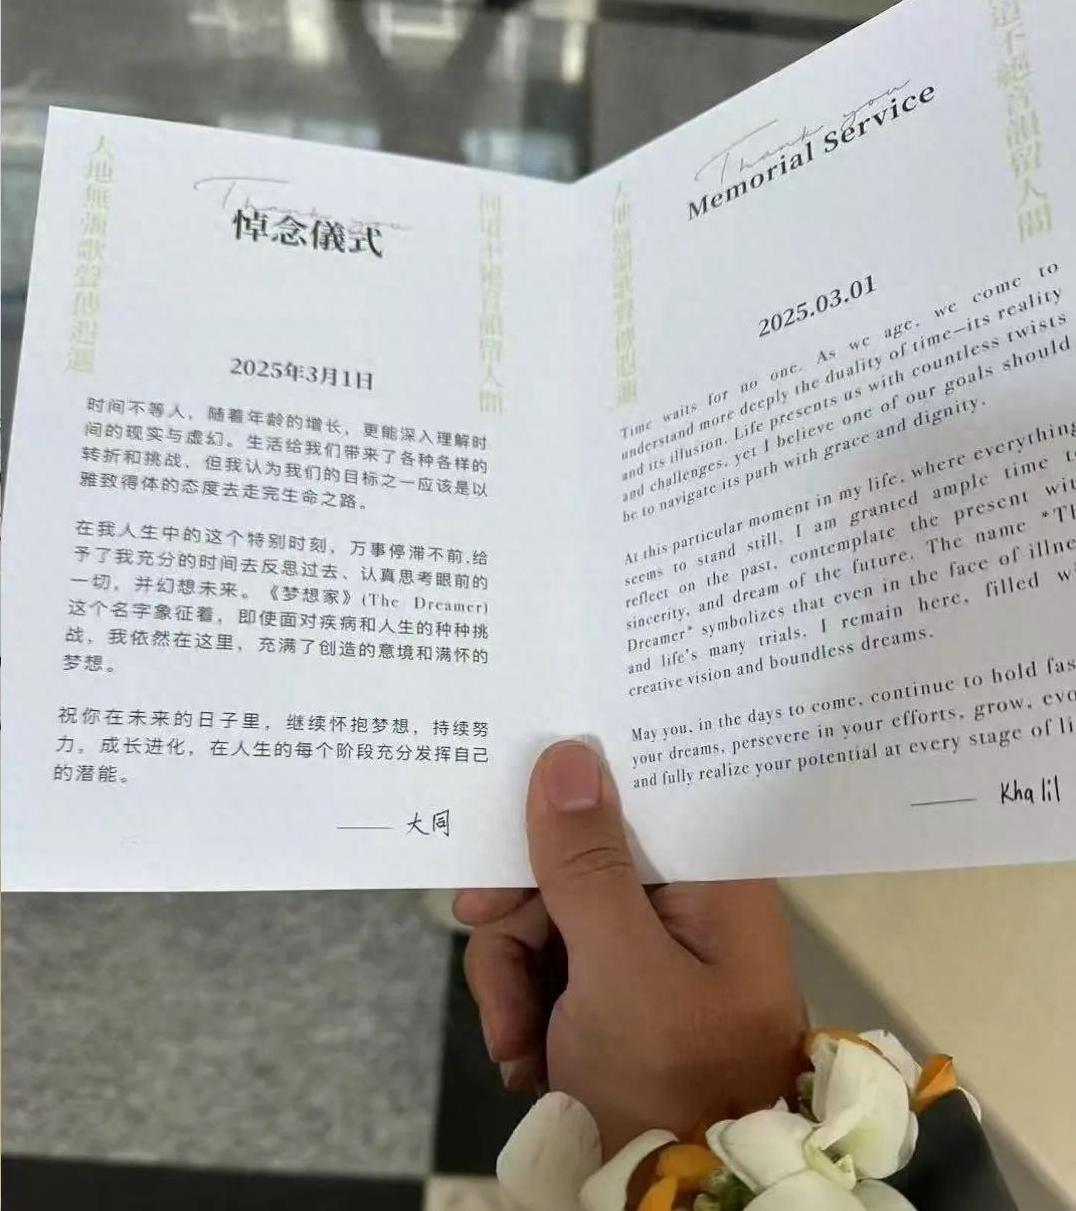 大地無彊歌聲傳遐邇
道不絕音韻留人間
Thank you
悼念儀式
2025年3月1日
时间不等人，随着年龄的增长，更能深入理解时
间的现实与虚幻。生活给我们带来了各种各样的
转折和挑战，但我认为我们的目标之一应该是以
雅致得体的态度去走完生命之路。
在我人生中的这个特别时刻，万事停滞不前,给
予了我充分的时间去反思过去、认真思考眼前的
一切，并幻想未来。《梦想家》(The Dreamer)
这个名字象征着，即使面对疾病和人生的种种挑
战，我依然在这里，充满了创造的意境和满怀的
梦想。
祝你在未来的日子里，继续怀抱梦想，持续努
力，成长进化，在人生的每个阶段充分发挥自己
的潜能。
—— 大同
大地無彊歌聲傳遐邇
道不絕音韻留人間
Thank you
Memorial Service
2025.03.01
Time waits for no one. As we age, we come to
understand more deeply the duality of time—its reality
and its illusion. Life presents us with countless twists
and challenges, yet I believe one of our goals should
be to navigate its path with grace and dignity.
At this particular moment in my life, where everything
seems to stand still, I am granted ample time t
reflect on the past, contemplate the present wit
sincerity, and dream of the future. The name *Th
Dreamer* symbolizes that even in the face of illne
and life's many trials, I remain here, filled w
creative vision and boundless dreams.
May you, in the days to come, continue to hold fas
your dreams, persevere in your efforts, grow, evo
and fully realize your potential at every stage of li
—— Khalil